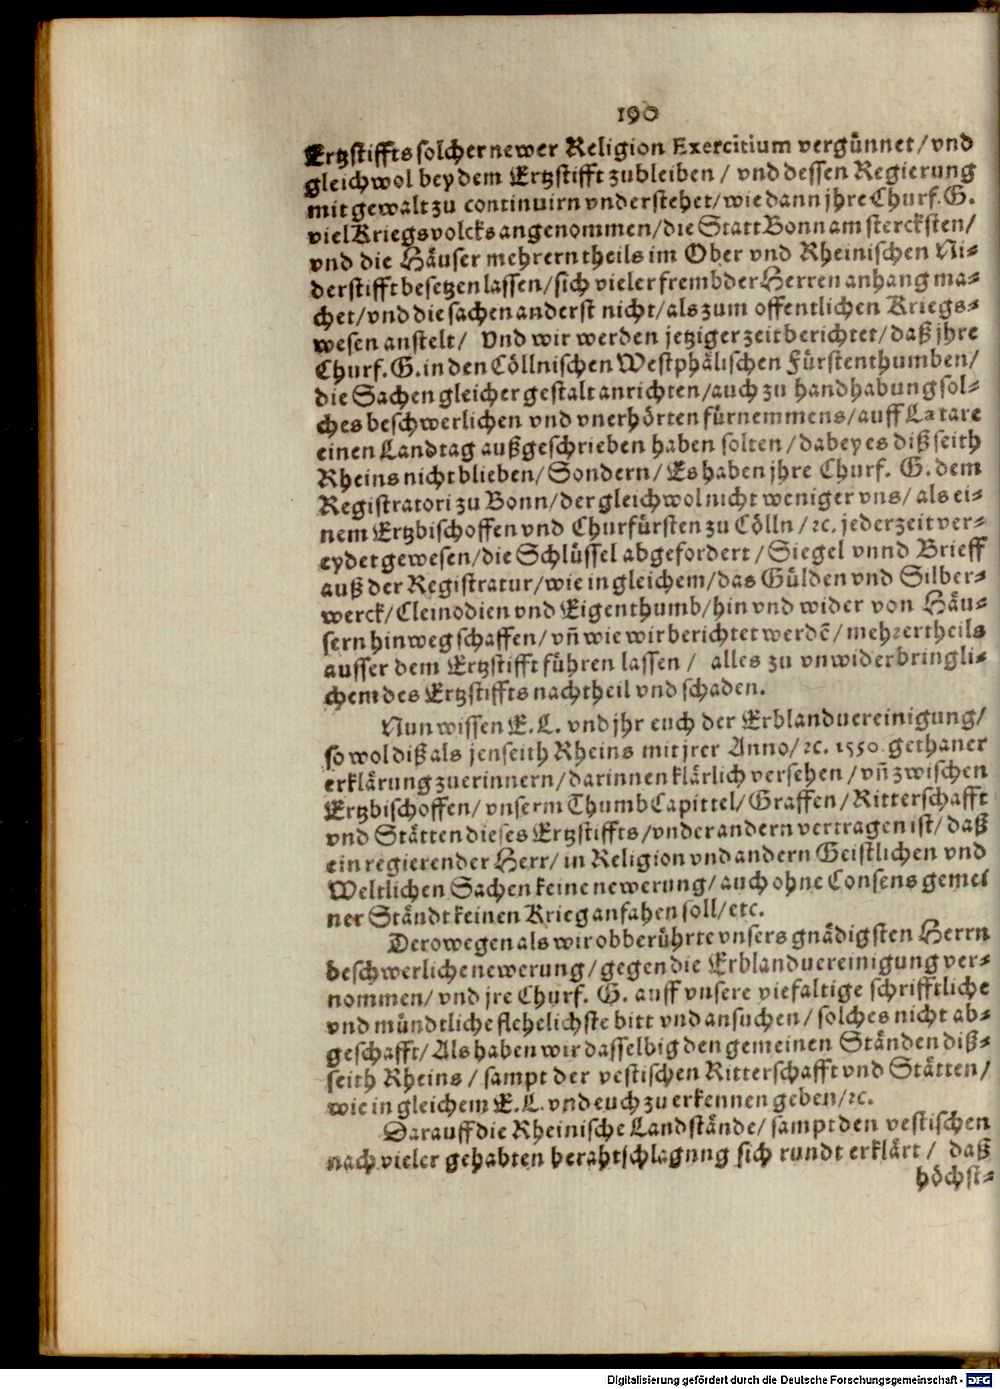 190
Ertzstiffts solcher newer Religion Exercitium vergünnet/ vnd
gleichwol bey dem Ertzstifft zubleiben / vnd dessen Regierung
mit gewalt zu continuirn vnderstehet/ wie dann jhre Churf. G.
viel Kriegsvolcks angenommen/ die Statt Bonn am stercksten/
vnd die Häuser mehrerntheils im Ober vnd Rheinischen Ni-
derstifft besetzen lassen/ sich vieler frembder Herren anhang ma-
chet/ vnd die sachen anderst nicht/ als zum offentlichen Kriegs-
wesen anstelt/ Vnd wir werden jetziger zeit berichtet/ daß jhre
Churf. G. in den Cöllnischen Westphälischen Fürstenthumben/
die Sachen gleicher gestalt anrichten/ auch zu handhabung sol-
ches beschwerlichen vnd vnerhörten fürnemmens/ auff Lætare
einen Landtag außgeschrieben haben solten/ dabey es diß seith
Rheins nicht blieben/ Sondern/ Es haben jhre Churf. G. dem
Registratori zu Bonn/ der gleichwol nicht weniger vns/ als ei-
nem Ertzbischoffen vnd Churfürsten zu Cölln/ ꝛc. jederzeit ver-
eydet gewesen/ die Schlüssel abgefordert/ Siegel vnnd Brieff
auß der Registratur/ wie in gleichem/ das Gülden vnd Silber-
werck/ Cleinodien vnd Eigenthumb/ hin vnd wider von Häu-
sern hinweg schaffen/ vñ wie wir berichtet werdẽ/ mehrertheils
ausser dem Ertzstifft führen lassen / alles zu vnwiderbringli-
chem des Ertzstiffts nachtheil vnd schaden.
Nun wissen E. L. vnd jhr euch der Erblandvereinigung/
so wol diß als jenseith Rheins mit jrer Anno/ ꝛc. 1550. gethaner
erklärung zuerinnern/ darinnen klärlich versehen/ vñ zwischen
Ertzbischoffen/ vnserm Thumb Capittel/ Graffen/ Ritterschafft
vnd Stätten dieses Ertzstiffts/ vnder andern vertragen ist/ daß
ein regierender Herr/ in Religion vnd andern Geistlichen vnd
Weltlichen Sachen keine newerung/ auch ohne Consens gemei
ner Ständt keinen Krieg anfahen soll/ etc.
Derowegen als wir obberührte vnsers gnädigsten Herrn
beschwerliche newerung/ gegen die Erblandvereinigung ver-
nommen/ vnd jre Churf. G. auff vnsere viefaltige schrifftliche
vnd mündtliche flehelichste bitt vnd ansuchen/ solches nicht ab-
geschafft/ Als haben wir dasselbig den gemeinen Ständen diß-
seith Rheins / sampt der vestischen Ritterschafft vnd Stätten/
wie in gleichem E. L. vnd euch zu erkennen geben/ ꝛc.
Darauff die Rheinische Landstände/ sampt den vestischen
nach vieler gehabten berahtschlagung sich rundt erklärt / daß
höchst-
Digitalisierung gefördert durch die Deutsche Forschungsgemeinschaft - DFG